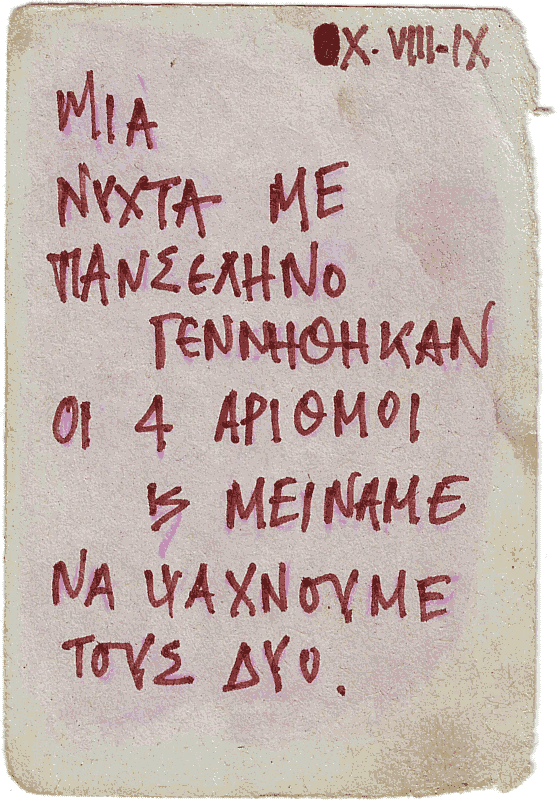 X. VIII-IX
ΜΙΑ
ΝΥΧΤΑ ΜΕ
ΠΑΝΣΕΛΗΝΟ
ΓΕΝΝΗΘΗΚΑΝ
ΟΙ 4 ΑΡΙΘΜΟΙ
Κ ΜΕΙΝΑΜΕ
ΝΑ ΨΑΧΝΟΥΜΕ
ΤΟΥΣ ΔΥΟ.